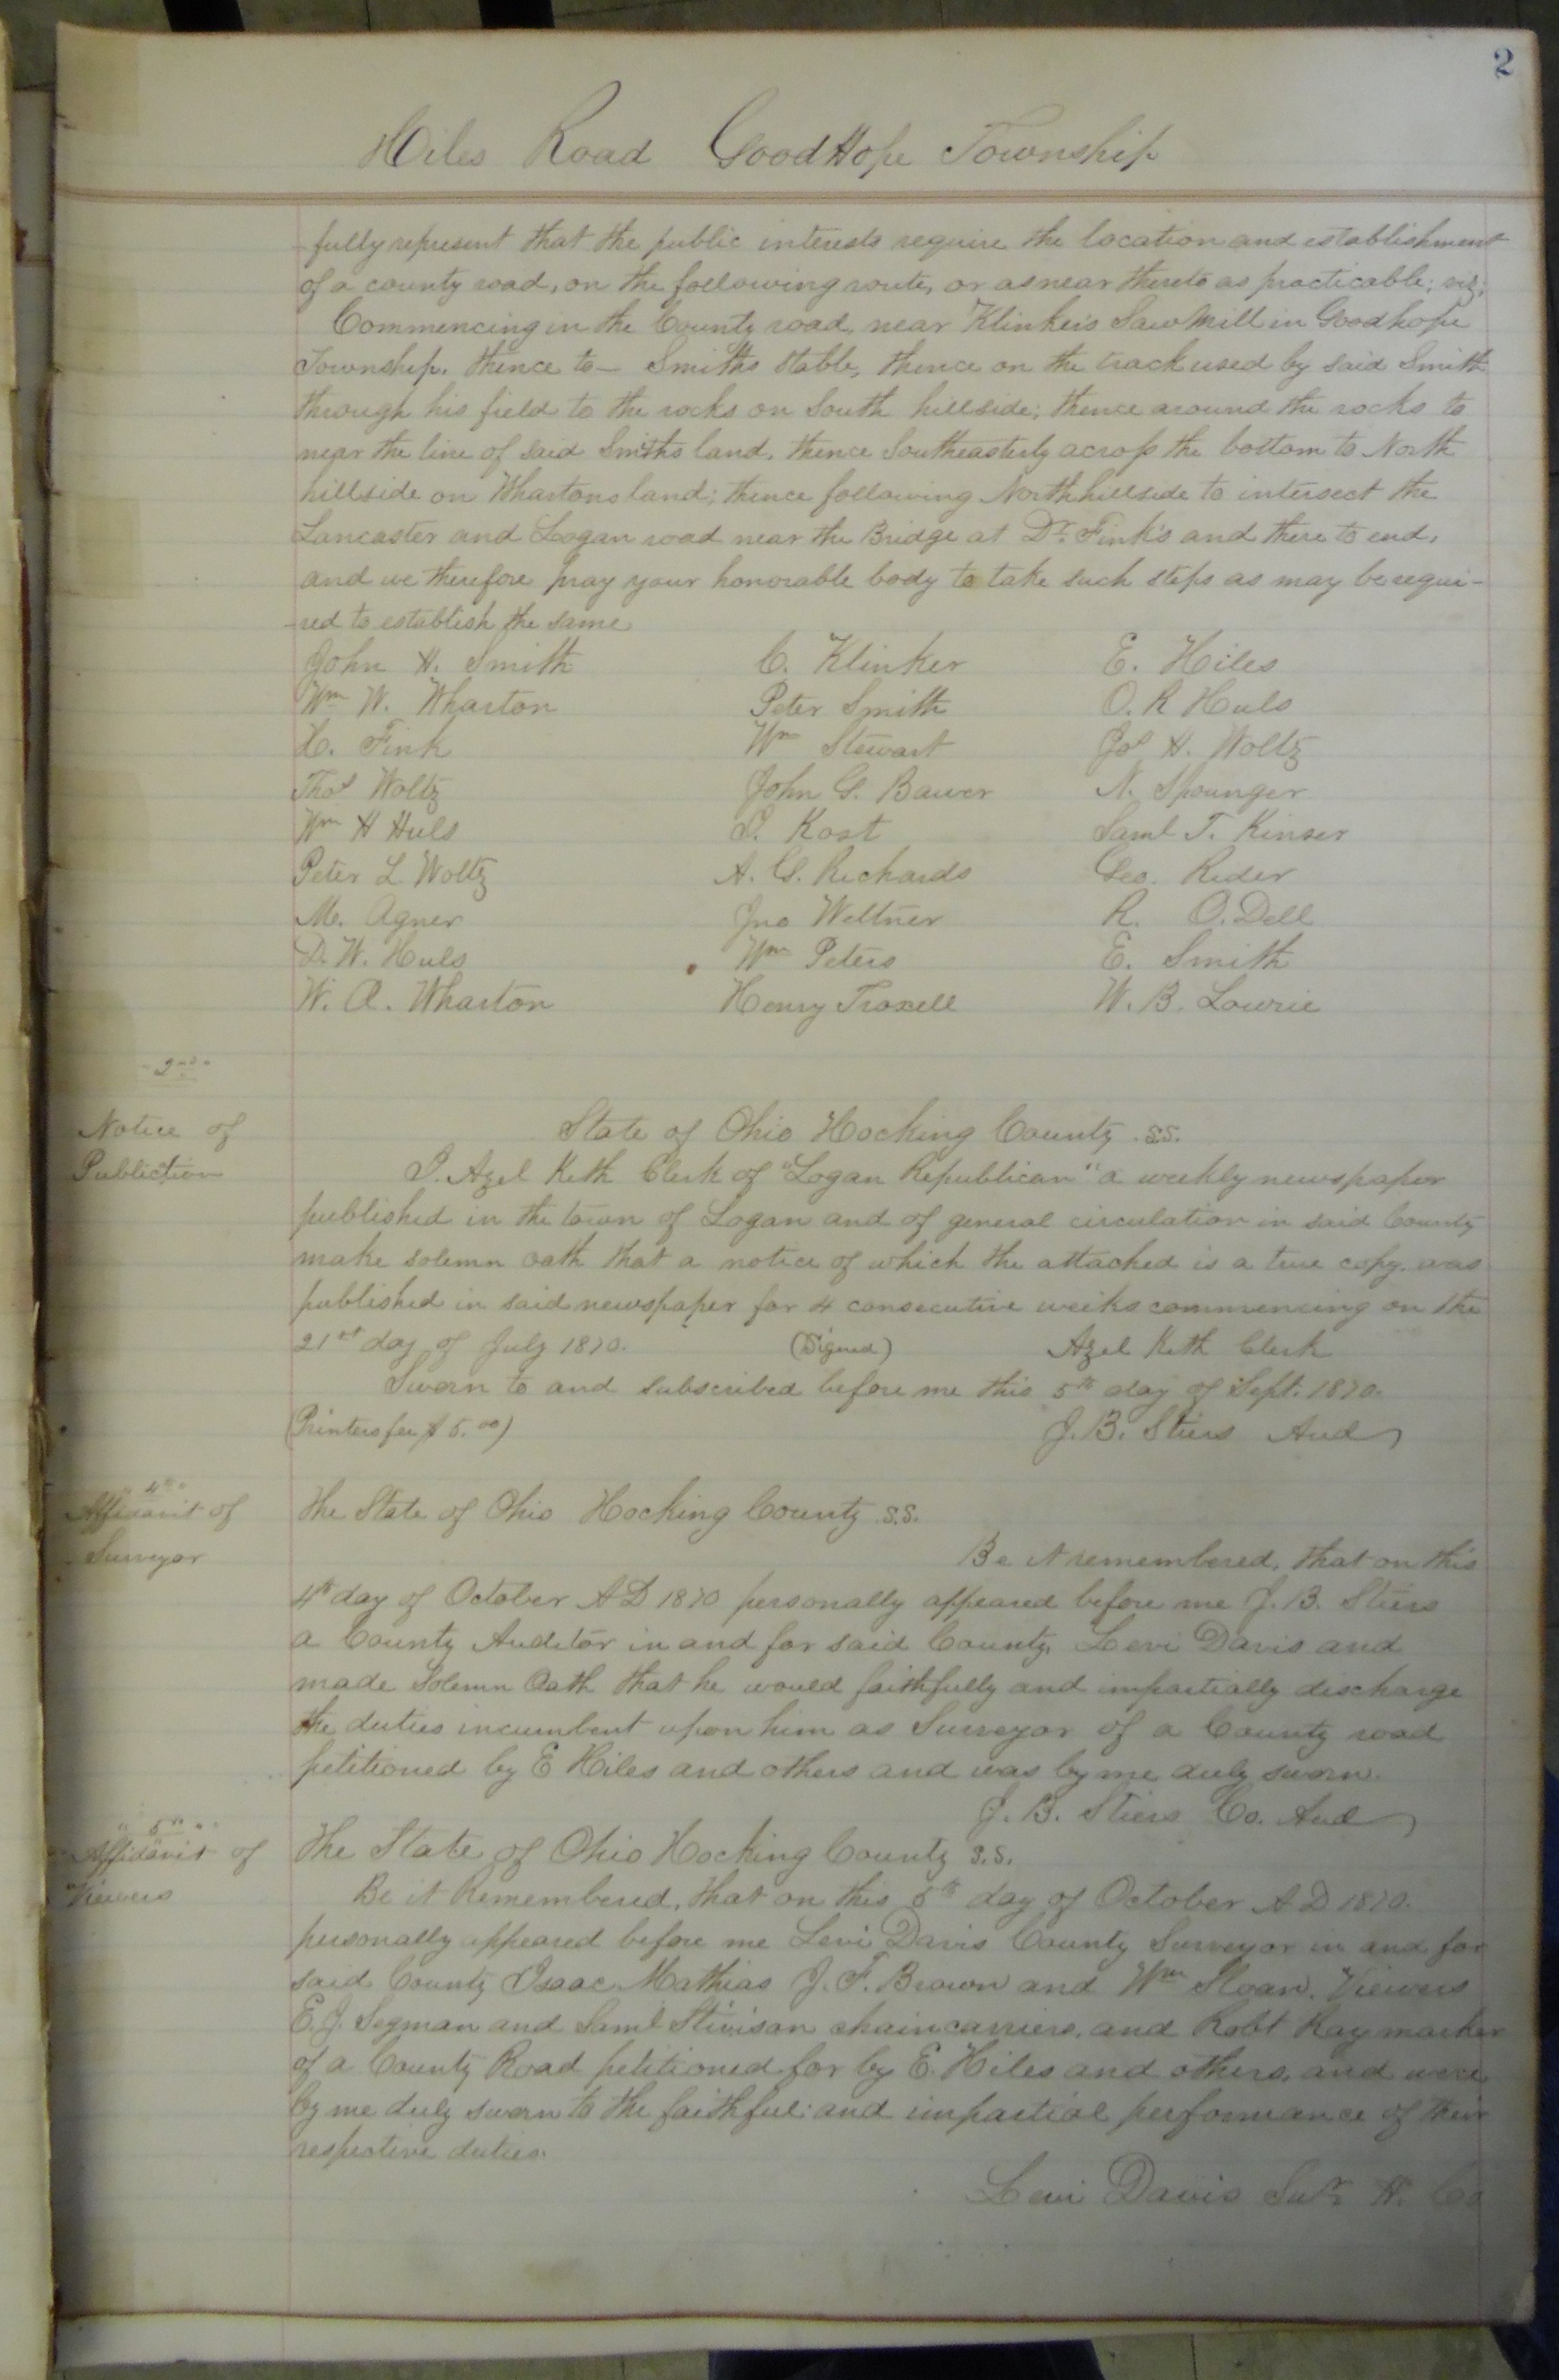 2
Hiles Road GoodHope Township
-fully represent that the public interests require the location and establishment
of a county road, on the following route, or as near thereto as practicable; viz;
Commencing in the County road, near Klinker's Saw Mill in Goodhope
Township. thence to — Smiths Stable, thence on the track used by said Smith
through his field to the rocks on South hillside; thence around the rocks to
near the line of said Smiths land, thence Southeasterly across the bottom to North
hillside on Whartons land; thence following North hillside to intersect the
Lancaster and Logan road near the Bridge at Dr. Fink's and there to end,
and we therefore pray your honorable body to take such steps as may be requi-
-red to establish the same
John H. Smith C. Klinker E. Hiles
Wm W. Wharton Peter Smith O. R Huls
H. Fink Wm Stewart Jos H. Woltz
Thos Woltz John G. Bawer N. Spounger
Wm H Huls I. Kost Saml T. Kinser
Peter L Woltz A. G. Richards Geo. Rider
M. Agner Jno Weltner R. O. Dell
D. W. Huls Wm Peters E. Smith
W. A. Wharton Henry Troxell W. B. Lowrie
Notice of
Publiction
State of Ohio Hocking County .S.S.
I. Azel Keth Clerk of "Logan Republican" a weekly newspaper
published in the town of Logan and of general circulation in said County
make solemn oath that a notice of which the attached is a true copy. was
published in said newspaper for 4 consecutive weeks commencing on the
21st day of July 1870. (Signed) Azel Keth Clerk
Sworn to and subscribed before me this 5th day of Sept. 1870.
(Printers fee $ 5.00) J. B. Stiers Aud
"4th"
Affidavit of
Surveyor
The State of Ohio Hocking County .S.S.
Be it remembered, that on this
4th day of October AD 1870 personally appeared before me J. B. Stiers
a County Auditor in and for said County, Levi Davis and
made Solemn Oath that he would faithfully and impartially discharge
the duties incumbent upon him as Surveyor of a County road
petitioned by E Hiles and others and was by me duly sworn.
J. B. Stiers Co. Aud
"5th"
Affidavit of
Viewers
The State of Ohio Hocking County S.S.
Be it Remembered, that on this 5th day of October A.D. 1870.
personally appeared before me Levi Davis County Surveyor in and for
said County Isaac Mathias J. F. Brown and Wm Sloan, Viewers
E. J. Segman and Saml Stivison chain carriers, and Robt Ray marker
of a County Road petitioned for by E. Hiles and others, and were
by me duly sworn to the faithful and impartial performance of their
respective duties.
Levi Davis Sur. H. Co